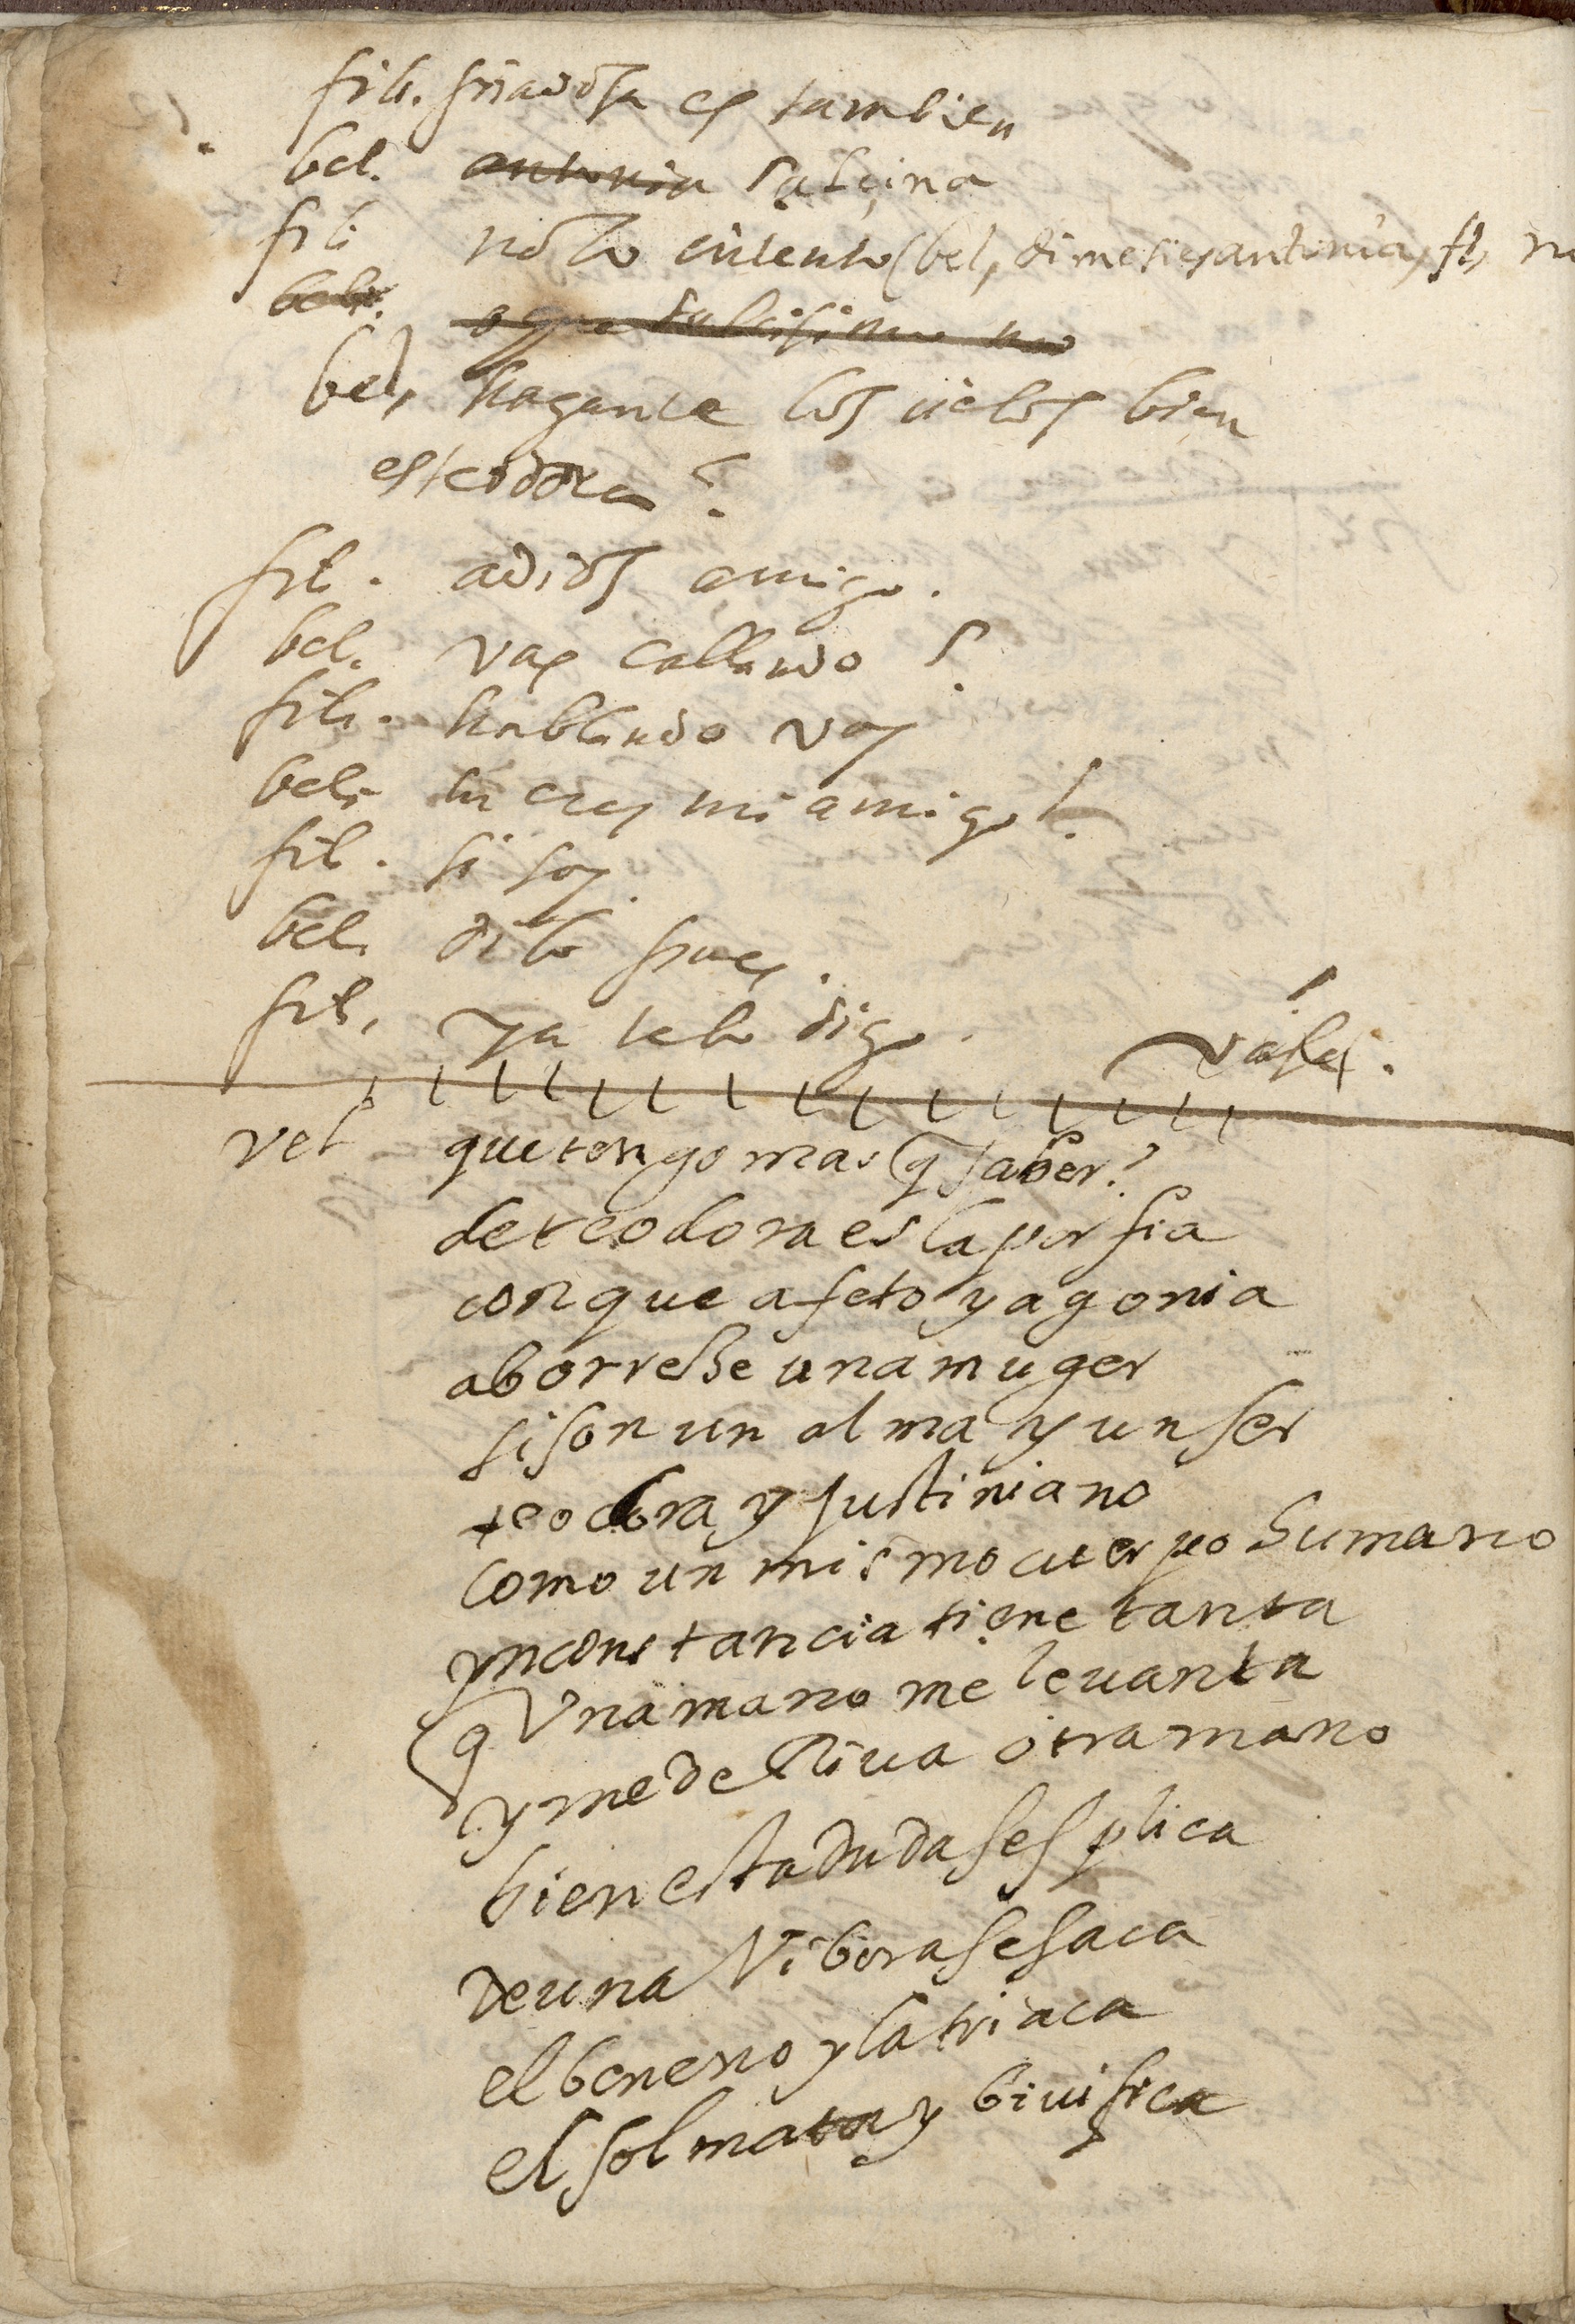 fili. piadosa es tambien
bel. antonia
fili no lo intento (bel, dime si es antonia, fi, no
beli.
bel, hagante los cielos bien
es teodora?
fil. adios amigo.
bel. vas callando?
fili. hablando voy
beli. tu eres mi amigo?
fil. si soy.
bel. dilo pues.
fil, ya telo digo. vase.
vel que tengo mas q saber?
de teodora es la porfia
con que afeto y agonia
aborresse una muger
si son un alma y un ser
teodora y justiniano
como un mismo cuerpo humano
ynconstancia tiene tanta
q Una mano me levanta
y me derriva otra mano
bien esta duda sesplica
de una Vibora se saca
el beneno y la triaca
el sol mata y bivifica